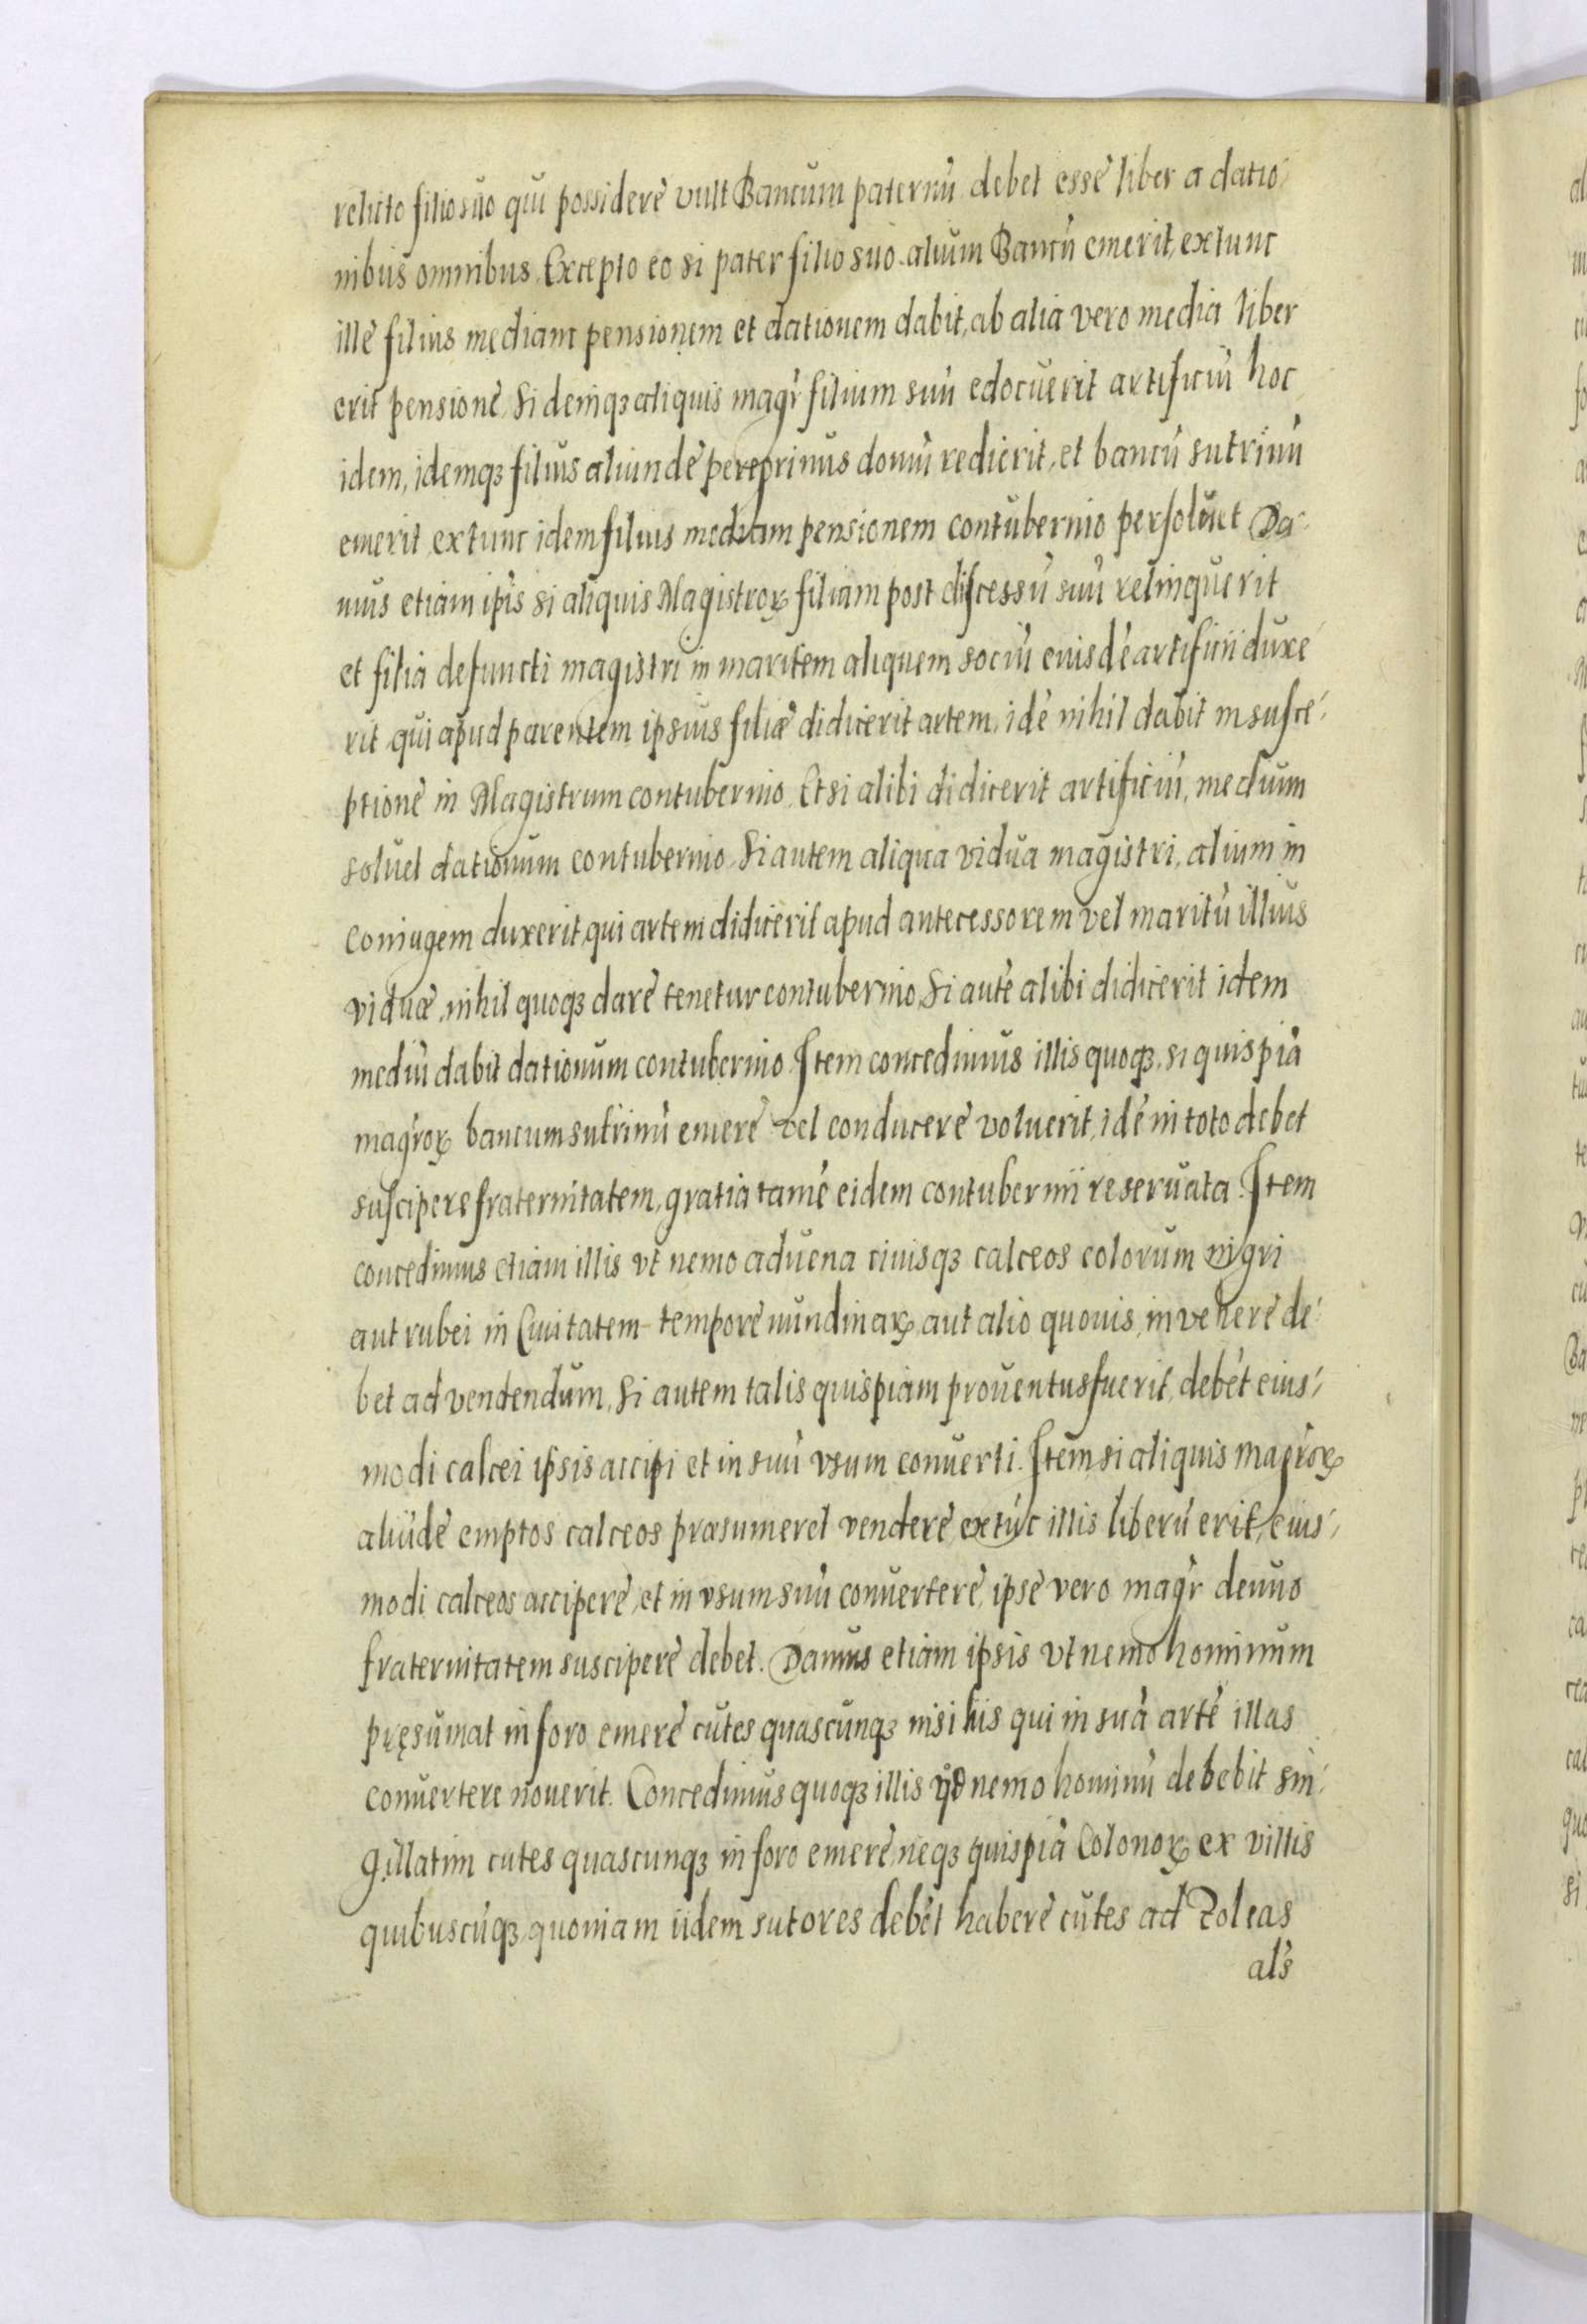 relicto filio suo qui possiderè vult Bancum paternũ debet essè liber a datio-
nibus omnibus. Excepto eo si pater filio suo alium Bancũ emerit, extunc
illè filius mediam pensionem et dationem dabit, ab alia vero media liber
erit pensionè. Si deniqꝫ aliquis magr̃ filium suũ edocuerit artificiũ hoc
idem, idemqꝫ filius aliundè peregrinus domũ redierit, et bancũ sutrinũ
emerit extunc idem filius mediam pensionem contubernio persoluet Da-
mus etiam ipĩs si aliquis Magistroꝝ filiam post discessũ suũ relinquerit
et filia defuncti magistri in maritem aliquem sociũ eiusdẽ artificii duxe-
rit qui apud parentem ipsius filiæ didicerit artem, idẽ nihil dabit in susce-
ptionẽ in Magistrum contubernio. Et si alibi didicerit artificiũ, medium
soluet dationum contubernio. Si autem aliqua vidua magistri, alium in
Coniugem duxerit, qui artem didicerit apud antecessorem vel maritũ illius
viduæ, nihil quoqꝫ darè tenetur contubernio, Si autẽ alibi didicerit idem
mediũ dabit dationum contubernio. Item concedimus illis quoqꝫ, si quispiã
magr̃oꝝ bancum sutrinũ emerè vel conducerè voluerit, idẽ in toto debet
suscipere fraternitatem, gratia tamẽ eidem contubernii reseruata. Item
concedimus etiam illis vt nemo aduena ciuisqꝫ calceos colorum nigri
aut rubei in Ciuitatem temporè nundinaꝝ aut alio quouis, inveherè de-
bet ad vendendum, Si autem talis quispiam prouentus fuerit, debẽt eius-
modi calcei ipsis accipi et in suũ vsum conuerti. Item, si aliquis magr̃oꝝ
aliũde emptos calceos præsumeret venderè, extũc illis liberũ erit, eius-
modi calceos acciperè, et in vsum suũ conuerterè, ipsè vero magr̃ denuo
fraternitatem susciperè debet. Damus etiam ipsis vt nemo hominum
pręsumat in foro emerè cutes quascunqꝫ nisi his qui in suã artẽ illas
conuertere nouerit. Concedimus quoqꝫ illis qđ nemo hominũ debebit sin-
gillatim cutes quascunqꝫ in foro emerè, neqꝫ quispiã Colonoꝝ ex villis
quibuscũqꝫ, quoniam iidem sutores debẽt haberè cutes ad Soleas
als̃